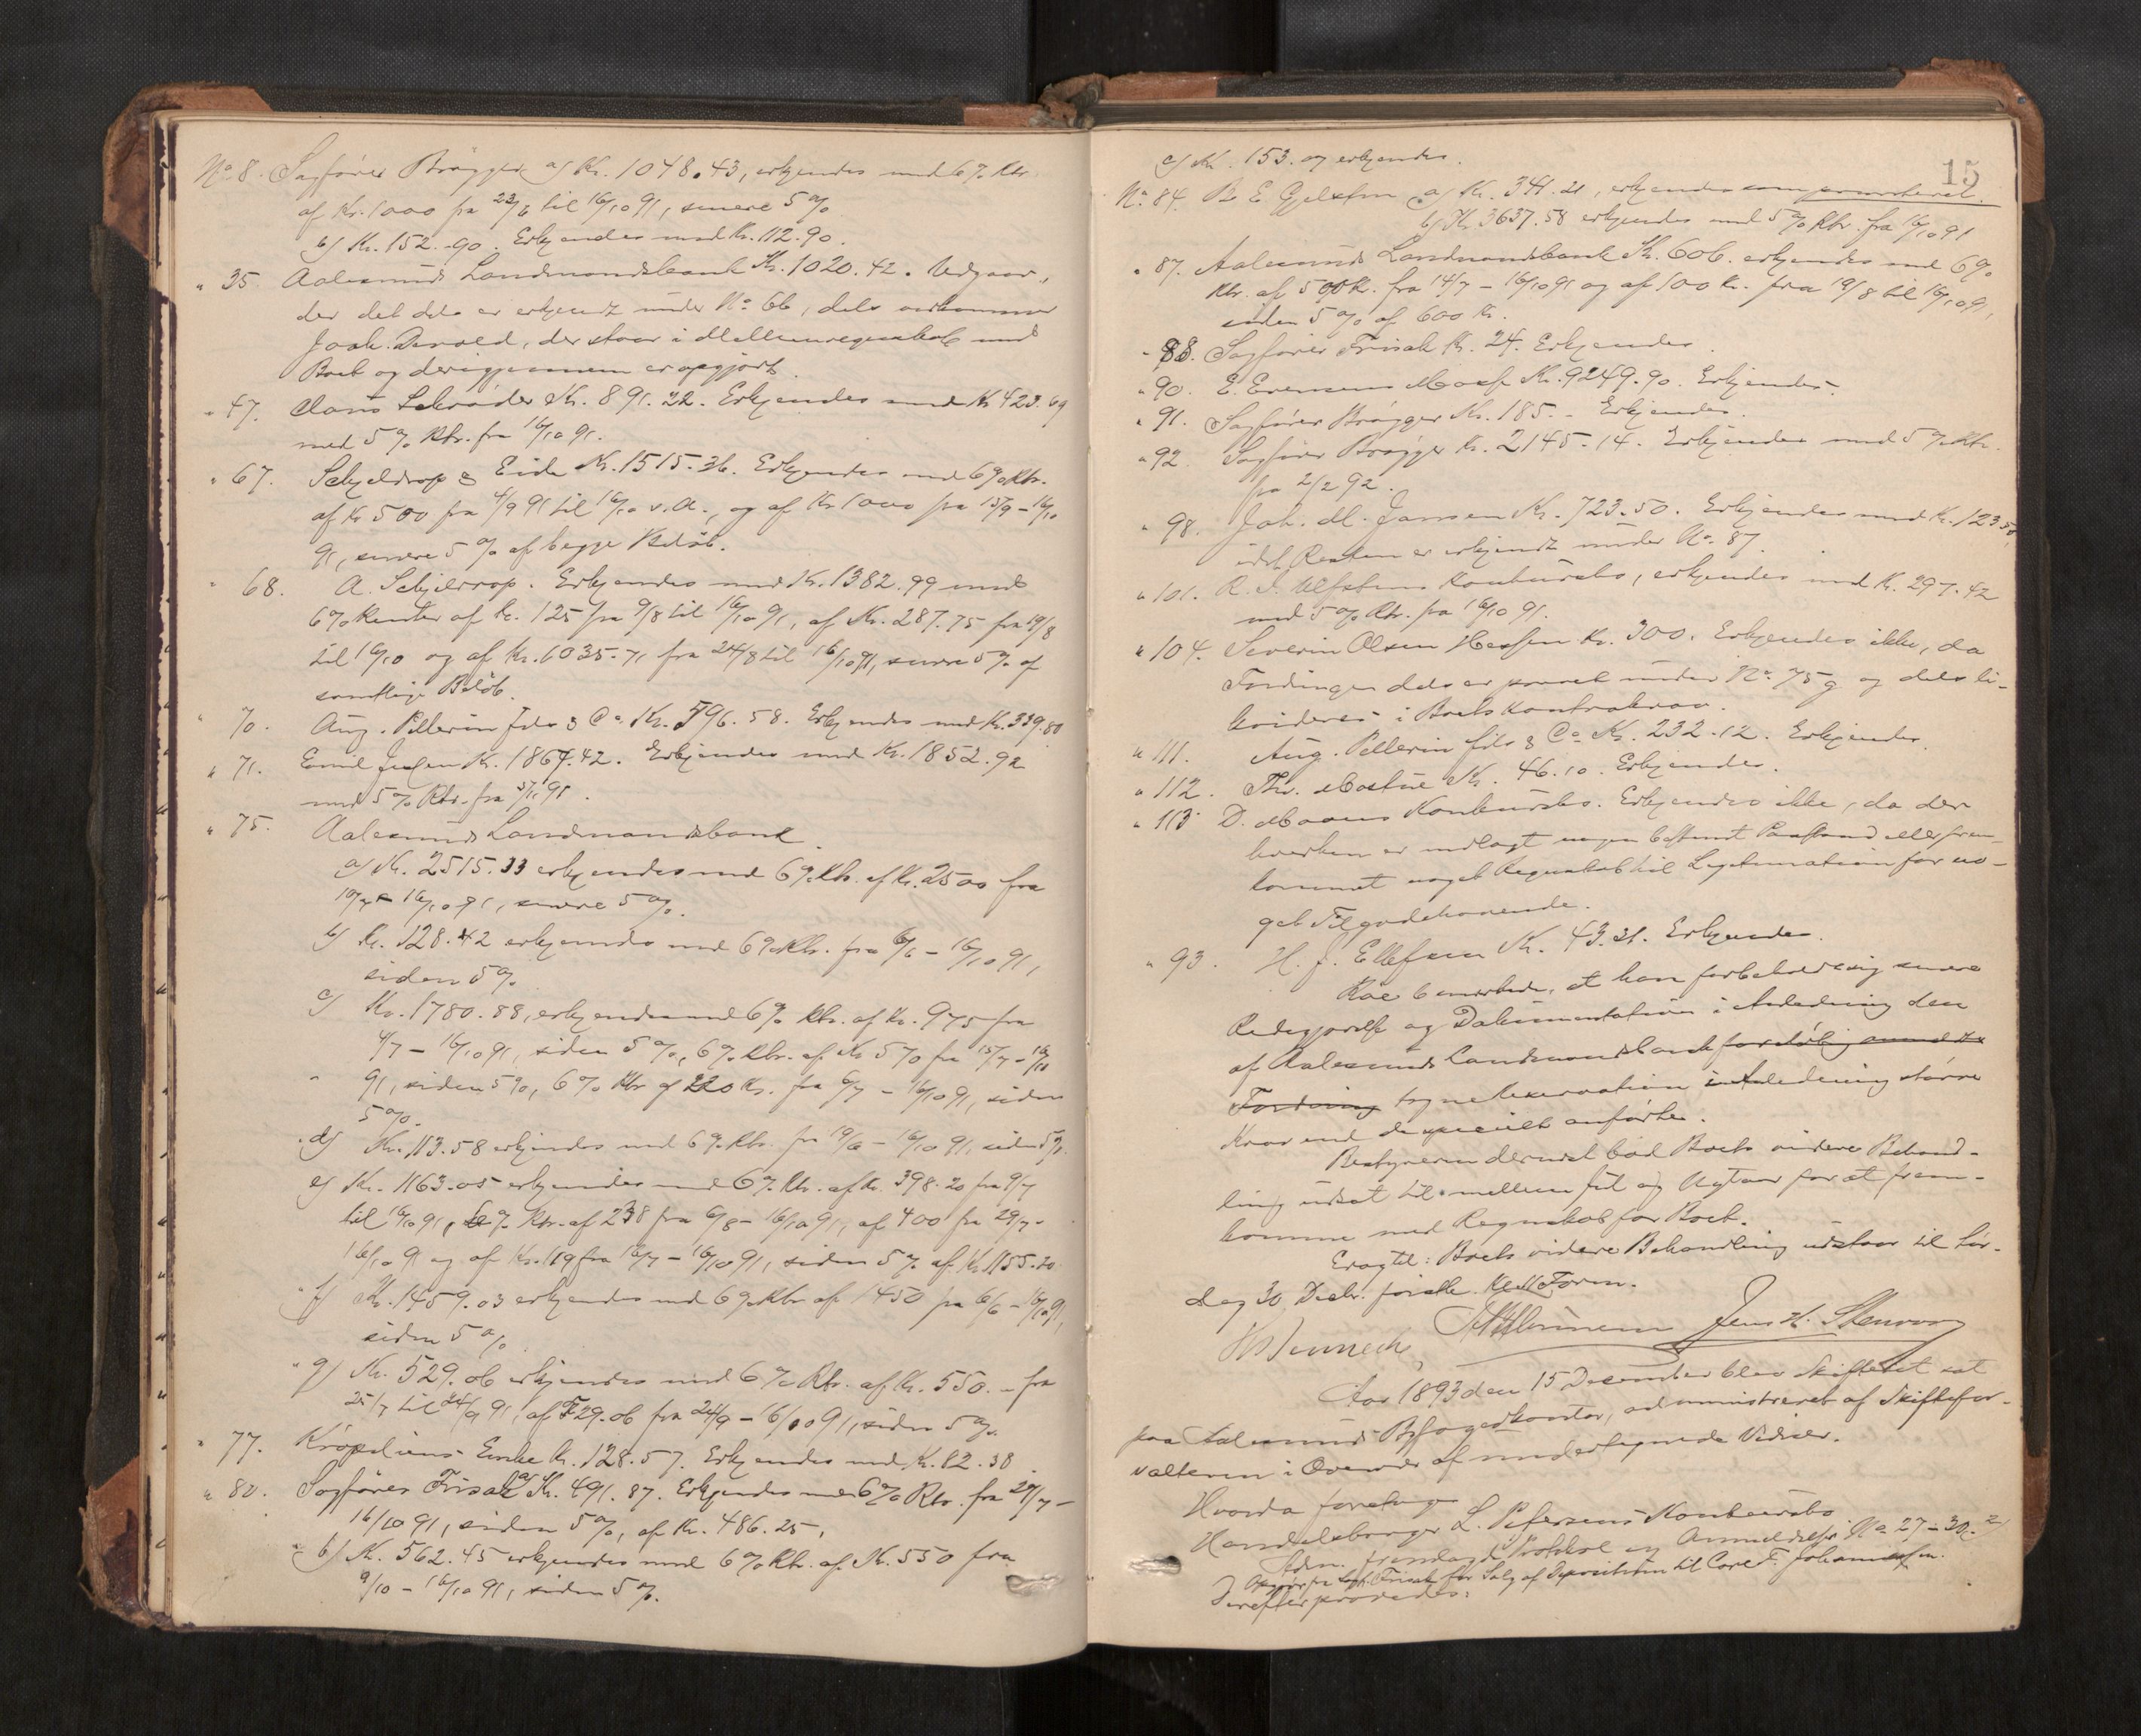 No 8. Sagfører Brøgger a) Kr. 1048.43, erkjendes med 6% Rtr.
af Kr. 1000 fra 22/6 til 16/10 91, senere 5%
b) Kr. 152.90. Erkjendes med Kr. 112.90.
" 35 Aalesunds Landmandsbank Kr. 1020.42. Udgaar,
da det dels er erkjendt under No. 66, dels vedkommer
Joak. Devold, der staar i Mellemregnskab med
Boet og derigjennem er opgjort.
" 47. Claus Schrøder Kr. 891.22. Erkjendes med Kr 423.69
med 5% Rtr. fra 16/10 91.
" 67. Schjeldrop & Eide Kr. 1515.36. Erkjendes med 6% Rtr.
af Kr 500 fra 4/9 91 til 16/10 s. A., og af Kr 1000 fra 15/9 - 16/10
91, senere 5% af begge Beløb.
" 68. A. Schjelrop. Erkjendes med Kr. 1382.99 med
6% Renter af Kr. 125 fra 9/8 til 16/10 91, af Kr. 287.75 fra 19/8
til 16/10 og af Kr. 1035.71 fra 24/8 til 16/10 91, senere 5% af
samtlige Beløb.
" 70. Aug. Pellerin fils & Co. Kr. 596.58. Erkjendes med Kr. 339.80
" 71. Emil Kr. 1867.42. Erkjendes med Kr. 1852.92
med 5% Rtr. fra 91.
" 75. Aalesunds Landmandsbank
a) Kr. 2515.33 erkjendes med 6% Rtr. af Kr. 2500 fra
10/7 - 16/10 91, senere 5%.
b) Kr. 128.42 erkjendes med 6% Rtr. fra 6/6 - 16/10 91,
siden 5%
c) Kr. 1780.88, erkjendes med 6% Rtr. af Kr. 975 fra
4/7 - 16/10 91, siden 5%, 6% Rtr. af Kr 570 fra 15/7 - 16/10
91, siden 5%, 6% Rtr af 220 Kr. fra 6/7 - 16/10 91, siden
5%.
d) Kr. 113.58 erkjendes med 6% Rtr. fra 19/6 - 16/10 91, siden 5%.
e) Kr. 1163.05 erkjendes med 6% Rtr. af Kr. 398.20 fra 9/7
til 16/10 91, 6% Rtr. af 238 fra 6/8 - 16/10 91, af 400 fra 29/7 -
16/10 91 og af Kr. 119 fra 16/7 - 16/10 91, siden 5% af Kr 1155.20
f) Kr. 1459.03 erkjendes med 6% Rtr af 1450 fra 6/6 - 16/10 91,
siden 5%
g) Kr. 529.06 erkjendes med 6% Rtr. af Kr. 550. - fra
25/7 til 24/9 91, af 529.06 fra 24/9 - 16/10 91, siden 5%.
" 77. Krøpeliens Enke Kr. 128.57. Erkjendes med Kr. 82.38
" 80. Sagfører Frisak a) Kr. 491.87. Erkjendes med 6% Rtr. fra 29/7 -
16/10 91, siden 5%, af Kr. 486.25,
b) Kr. 562.45 erkjendes med 6% Rtr. af Kr. 550 fra
9/10 - 16/10 91, siden 5%.
15
c) Kr. 153. og erkjendes.
No. 84. B E Gjelsten a) Kr. 341.21, erkjendes som prioriteret.
b) Kr. 3637.58 erkjendes med 5% Rtr. fra 16/10 91
" 87. Aalesunds Landmandsbank Kr. 606. erkjendes med 6%
Rtr. af 500 Kr. fra 14/7 - 16/10 91 og af 100 Kr. fra 19/8 til 16/10 91,
siden 5% af 600 Kr.
" 88. Sagfører Frisak Kr. 24. Erkjendes.
" 90. E. Evensens Kr. 9249.90. Erkjendes.
" 91. Sagfører Brøgger Kr. 185. - Erkjendes.
" 92. Sagfører Brøgger Kr. 2145.14. Erkjendes med 5% Rtr.
fra 2/2 92.
" 98. Joh. M. Jansen Kr. 723.50. Erkjendes med Kr. 123.50,
idet Resten er erkjendt under No. 87.
" 101. R. J. Ulfstens Konkursbo, erkjendes med Kr. 297.42
med 5% Rtr. fra 16/10 91.
" 104. Severin Olsen Hessen Kr. 300. Erkjendes ikke, da
Fordringen dels er prøvet under No. 75 g og dels li-
kvideres i Boets Kontrakrav.
" 111. Aug. Pellerin fils & Co Kr. 232.12. Erkjendes.
" 112. Th. Mostue Kr. 46.10. Erkjendes.
" 113 D. Konkursbo. Erkjendes ikke, da der
hverken er nedlagt nogen bestemt Paastand eller frem-
kommet noget Regnskab til Legitimation for no-
get Tilgodehavende.
" 93. H. J. Ellefsen Kr. 43.21. Erkjendes.
Roe bemærkede, at han forbeholder sig senere
Redegjørelse og Dokumentation i Anledning den
af Aalesunds Landmandsbank foreløbig anmeldte
Fordring Reservation i Anledning større
Krav end de specielt anførte.
Bestyreren derved bad Boets videre Behand-
ling udsat til mellem Jul og Nytaar for at frem-
komme med Regnskab for Boet.
Eragtet: Boets videre Behandling udstaar til Lør-
dag 30 Decbr. førstk. Kl 11 Form.
Jens H. Stenvaag
Aar 1893 den 15 December blev Skifteret sat
paa Aalesunds Byfogedkontor, administreret af Skiftefor-
valteren i Overvær af undertegnede Vidner.
Hvorda foretoges
Handelsborger L. Petersens Konkursbo
Adm. fremlagde Protokol og Anmeldelser No. 27 - 30.
Opgjør fra Sagf. Frisak for Salg af Depositum til Carl F. Johannessen.
Derefter prøvedes: